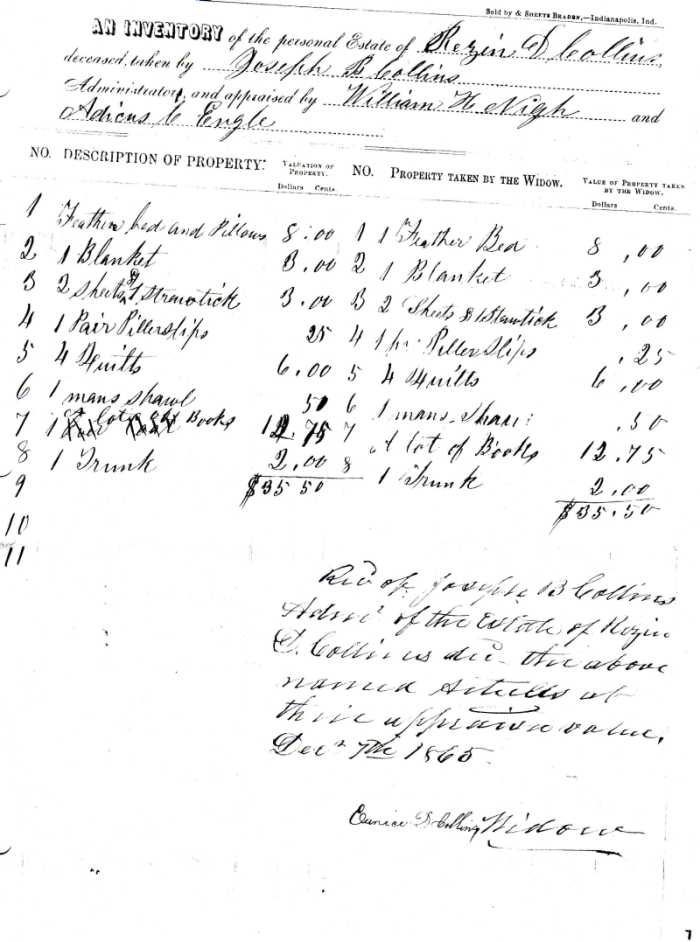 Sold by & SHEETS BRADEN,—Indianapolis, Ind.
AN INVENTORY of the personal Estate of Rezin D Collins,
deceased, taken by Joseph B Collins
Administrator, and appraised by William H Nigh and
Adicus C Engle
NO. DESCRIPTION OF PROPERTY. VALUATION OF PROPERTY. NO. PROPERTY TAKEN BY THE WIDOW. VALUE OF PROPERTY TAKEN BY THE WIDOW.
Dollars Cents. Dollars Cents.
1 Feather bed and Pillows 8.00 1 1 Feather Bed 8,00
2 1 Blanket 3.00 2 1 Blanket 3,00
3 2 Sheets & 1 Strawtick 3.00 3 2 Sheets & 1 Strawtick 3,00
4 1 Pair Pillerslips 25 4 1 pr Piller Slips .25
5 4 Quilts 6.00 5 4 Quilts 6,00
6 1 mans shawl 50 6 1 mans Shawl .50
7 1 lot Books 12.75 7 1 lot of Books 12.75
8 1 Trunk 2.00 8 1 Trunk 2.00
9 $35.50 $35.50
10
11
Recd of Joseph B Collins
Admr of the Estate of Rezin
D. Collins decd the above
named Articles at
their appraised value.
Decr 7th 1865
Eunice D Collins Widow
7